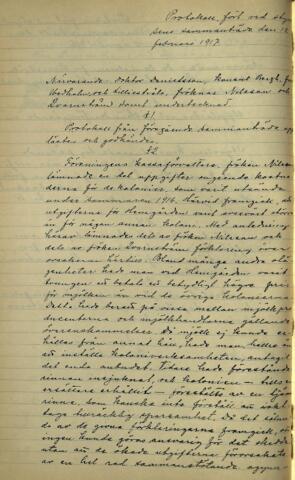 Protokoll, fört vid sty-
sens sammanträde den 12
februari 1917.
Närvarande: doktor Danielsson, konsul Bergh, fru
Hedholm och Lilliestråle, fröknar Nilsson och
Qvarnström samt undertecknad.
§1.
Protokoll från föregående sammanträde upp
lästes och godkändes.
§2.
Föreningens kassaförvaltare, fröken Nilsson
lämnade en del uppgifter angående kostna
derna för de kolonier, som varit utsända
under sommaren 1916. Härvid framgick, att
utgifterna för Hemgården varit avsevärt större
än för någon annan koloni. Med anledning
härav lämnades dels av fröken Nilsson och
dels av fröken Qvarnström förklaring över
orsakerna härtill. Bland många andra olä-
genheter hade man vid Hemgården varit
tvungen att betala ett betydligt högre pris
för mjölken än vid de övriga kolonierna.
Detta hade berott på vissa mellan mjölkpro
ducenterna och mjölkhandlarna gällande
överenskommelser. Då mjölk ej kunde er-
hållas från annat håll, hade man hellre än
att inställa koloniverksamheten, antagit
det enda anbudet. Vidare hade förestånda
rinnan insjuknat, och kolonien – tills en
ersättare erhållit – förestått av en
rinna, som kanske inte förstått att
taga tillräcklig sparsamhet. Då det
av de givna förklaringarna framgick, att
ingen kunde göras ansvarig för det skedda
utan att de ökade utgifterna förorsakats
av en hel rad sammanstötande